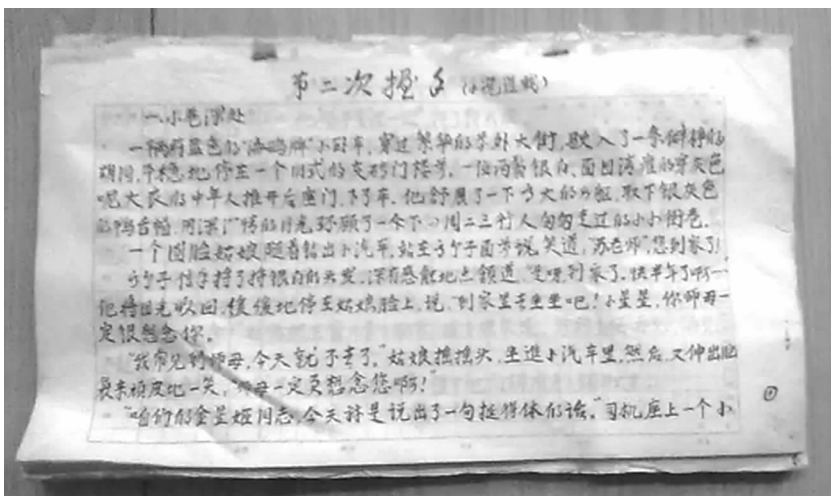 第二次握手
一.小巷深处
一辆蔚蓝色的“海鸥牌”小卧车,穿过繁华的景外大街,驶入了一条僻静的
胡同,平稳地停在一个旧式的灰砖门楼旁。一位两鬓银白,面目清癯的穿灰色
呢大衣的中年人推开后座门,下了车。他舒展了一下高大的身躯,取下银灰色
的鸭舌帽,用深沉的目光环顾了一个下四周二三行人匆匆走过的小小街巷。
一个圆脸姑娘随着钻出小汽车,站在高个子面前说,笑道,“苏老师,您到家了!
高个子信手捋了捋银白的头发,深有感触地点领道,“是呀,到家了,快半年了啊一
他将目光收回,缓缓地停在姑娘脸上,说,“到家里去坐坐吧!小星星,你师母一
定很想念你。
“我常见到师母,今天就不去了。”姑娘摇摇头,坐进小汽车里,然后,又伸出脸
袋来顽皮地一笑,“师母一定更想念您啊!”
“咱们的金星姬同志,今天算是说出了一句挺得体的话。”司机座上一个小
①